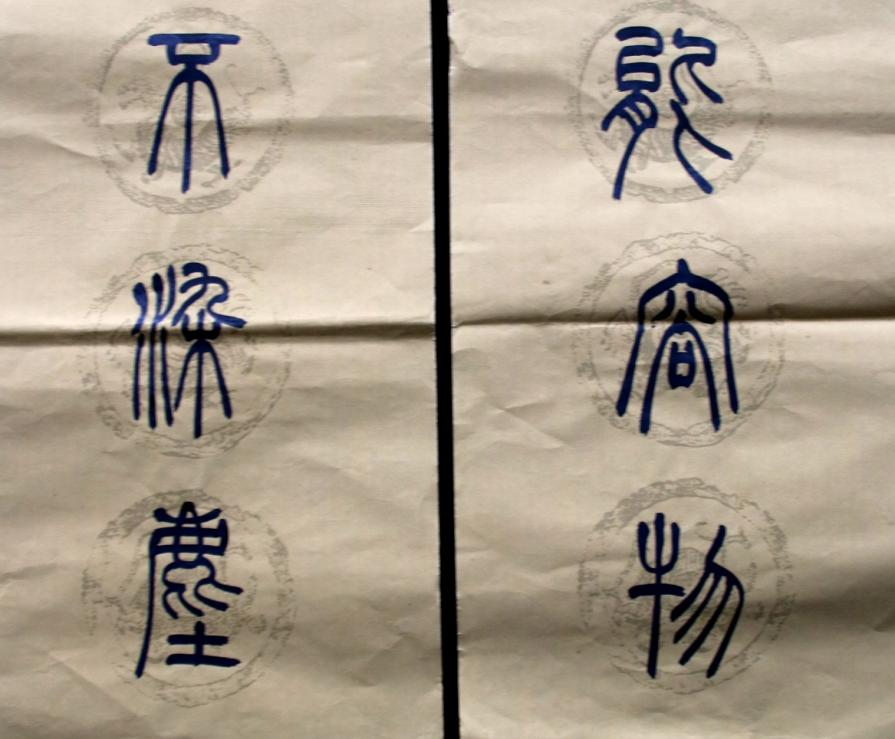 能容物
不染塵